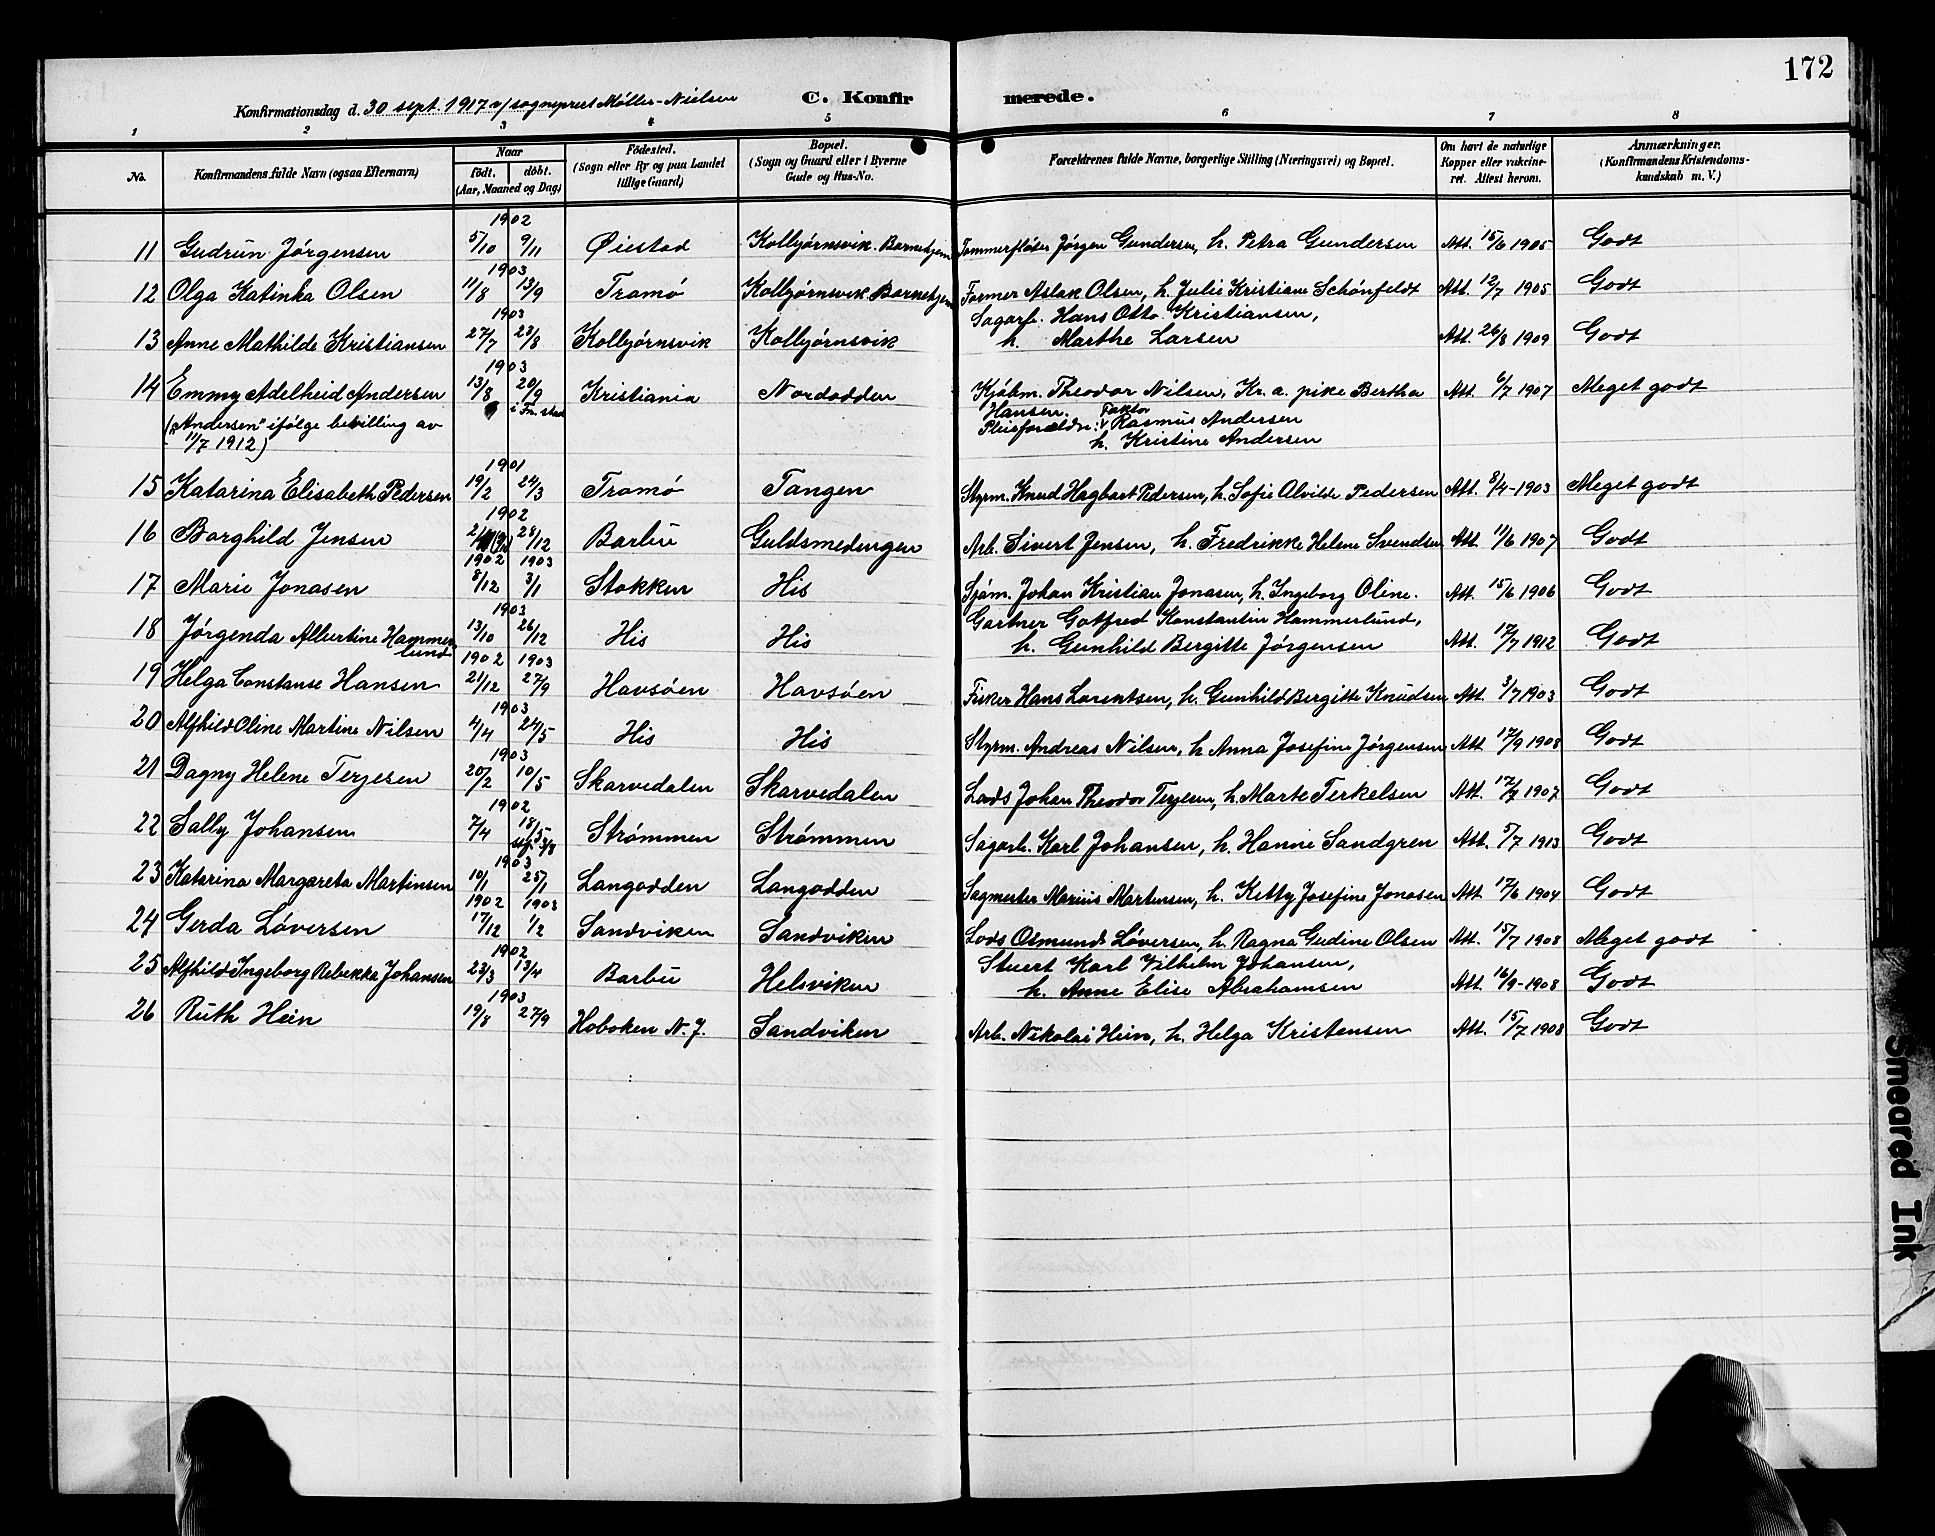 172
Konfirmationsdag d. 30 sept. 1917 v/ sogneprest Møller-Nielsen C. Konfirmerede.
1 2 3 4 5 6 7 8
No. Konfirmandens fulde Navn (ogsaa Efternavn) Naar født. døbt. (Aar, Maaned og Dag) Fødested. (Sogn eller By og paa Landet tillige Gaard) Bopæl. (Sogn og Gaard eller i Byerne Gade og Hus-No. Forældrenes fulde Navne, borgerlige Stilling (Næringsvei) og Bopæl. Om havt de naturlige Kopper eller vakcineret. Attest herom. Anmærkninger. (Konfirmandens Kristendomskundskab m. V.)
1902
11 Gudrun Jørgensen 5/10 9/11 Øiestad Kolbjørnsvik. Barnehjem Tømmerfløter Jørgen Gundersen, h. Petra Gundersen Att. 15/6 1905 Godt
1903
12 Olga Katinka Olsen 11/8 13/9 Tromø Kolbjørnsvik Barnehjem Former Aslak Olsen, h. Julie Kristiane Schönfeldt Att. 12/7 1905 Godt
1903 Sagarb. Hans Otto Kristiansen,
13 Anne Mathilde Kristiansen 27/7 23/8 Kolbjørnsvik Kolbjørnsvik h. Marthe Larsen Att. 26/8 1909 Godt
1903
14 Emmy Adelheid Andersen 13/8 20/9 Kristiania Nordodden Kjøbm. Theodor Nilsen, Kr.a. pike Bertha Att. 6/7 1907 Meget godt
("Andersen" ifølge bevilling av i Fr. stad Hansen. Faktor
11/7 1912) Pleieforældre: Rasmus Andersen
h. Kristine Andersen
1901
15 Katarina Elisabeth Pedersen 19/2 24/3 Tromø Tangen Styrm. Knud Hagbart Pedersen, h. Sofie Alvilde Pedersen Att. 8/4-1903 Meget godt
1902
16 Borghild Jensen 28/12 Barbu Guldsmedengen Arb. Sivert Jensen, h. Fredrikke Helene Svendsen Att. 11/6 1907 Godt
1902 1903
17 Marie Jonasen 8/12 3/1 Stokken His Sjøm. Johan Kristian Jonasen, h. Ingeborg Oline. Att. 15/6 1906 Godt
1903 Gartner Gotfred Konstantin Hammerlund,
18 Jørgenda Albertine Hammerlund 13/10 26/12 His His h. Gunhild Bergitte Jørgensen Att. 17/7 1912 Godt
1902 1903
19 Helga Constanse Hansen 21/12 27/9 Havsøen Havsøen Fisker Hans Lorentsen, h. Gunhild Bergitte Knudsen Att. 3/7 1903 Godt
1903
20 Alfhild Oline Martine Nilsen 4/4 24/5 His His Styrm. Andreas Nilsen, h. Anna Josefine Jørgensen Att. 17/9 1908 Godt
1903
21 Dagny Helene Terjesen 20/2 10/5 Skarvedalen Skarvedalen Lods Johan Theodor Terjesen, h. Marte Terkelsen Att. 17/7 1907 Godt
1902
22 Sally Johansen 7/4 18/5 Strømmen Strømmen Sagarb. Karl Johansen, h. Hanne Sandgren Att. 5/7 1913 Godt
3/8
1903
23 Katarina Margareta Martinsen 10/1 25/1 Langodden Langodden Sagmester Marius Martensen, h. Kitty Josefine Jonasen Att. 17/6 1904 Godt
1902 1903
24 Gerda Løversen 17/12 1/2 Sandviken Sandviken Lods Osmund Løversen, h. Ragna Gudine Olsen Att. 15/7 1908 Meget godt
1902 Stuert Karl Vilhelm Johansen,
25 Alfhild Ingeborg Rebekka Johansen 23/3 13/4 Barbu Helsviken h. Anne Elise Abrahamsen Att. 16/9-1908 Godt
1903
26 Ruth Hein 19/8 27/9 Hoboken N.J. Sandviken Arb. Nikolai Hein, h. Helga Kristensen Att. 15/7 1908 Godt
Smeared Ink